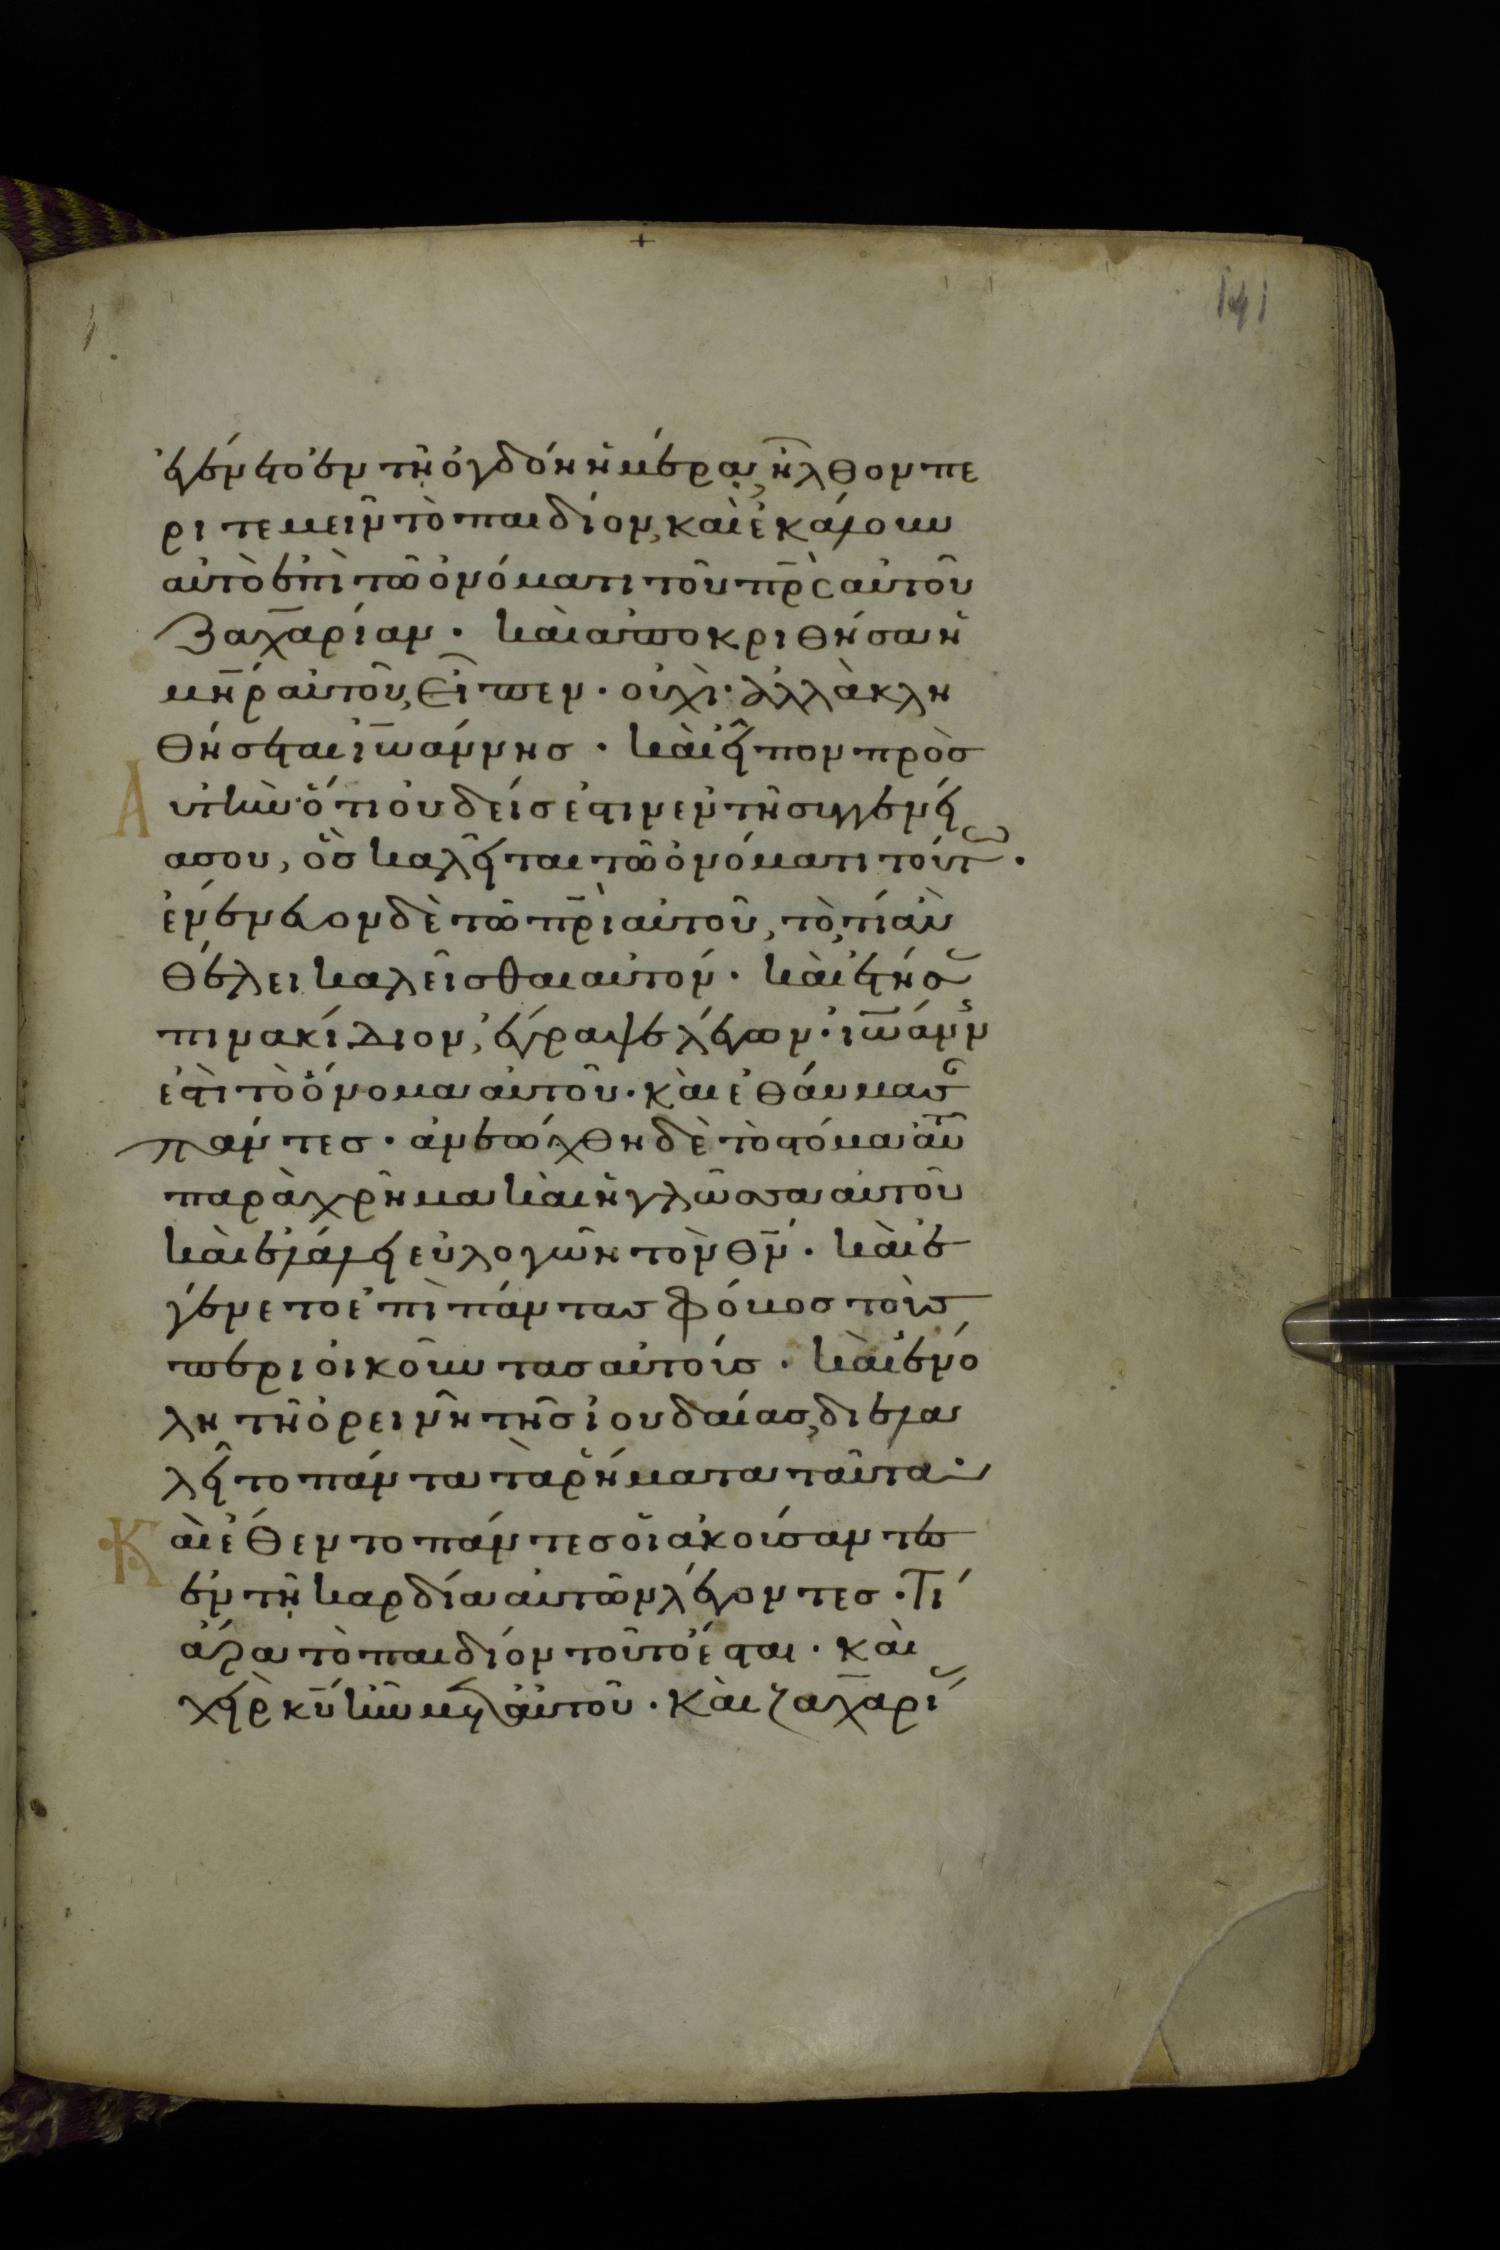 141
ἐγένετο ἐν τῆ ὀγδόη ἡμέρα, ἦλθον πε
ριτεμεῖν τὸ παιδίον, καὶ ἐκάλουν
αὐτὸ ἐπὶ τῶ ὀνόματι τοῦ πρ̅ς αὐτοῦ
Ζαχαρίαν · καὶ ἀποκριθήσα ἡ
μη̅ρ αὐτοῦ, εἶπεν · οὐχὶ · ἀλλὰ κλη
θήσεται ἰωάννησ · καὶ εἶπον πρὸσ
Αὐτὴν · ὅτι οὐδείσ ἐστιν ἐν τῆ συγγενεί
α σου, ὃσ καλεῖται τῶ ὀνόματι τούτω ·
ἐνένευον δὲ τῶ πρ̅ι αὐτοῦ, τὸ, τί ἂν
θέλει καλεῖσθαι αὐτόν · καὶ αἰτήσασ
πινακίδιον, ἔγραψε λέγων · ἰωάνν
ἐστὶ τὸ ὄνομα αὐτοῦ · καὶ ἐθαύμασ
πάντεσ · ἀνεώχθη δὲ τὸ στόμα αὐτοῦ
παρὰχρῆμα καὶ ἡ γλῶσσα αὐτοῦ
καὶ ἐλάλει εὐλογῶν τὸν θ̅ν · καὶ ἐ
γένετο ἐπὶ πάντασ φόβοσ τοὺσ
περιοικοῦντασ αὐτούσ · καὶ ἐν ὅ
λη τῆ ὀρεινῆ τῆσ ἰουδαίασ, διελα
λεῖτο πάντα τὰ ῥήματα ταῦτα ·
Καὶ ἔθεντο πάντεσ οἱ ἀκούσαντεσ
ἐν τῆ καρδία αὐτῶν λέγοντεσ · Τί
ἄρα τὸ παιδίον τοῦτο ἔσται · καὶ
χεὶρ κ̅υ ἦν μετ' αὐτοῦ · Καὶ ζαχαρί